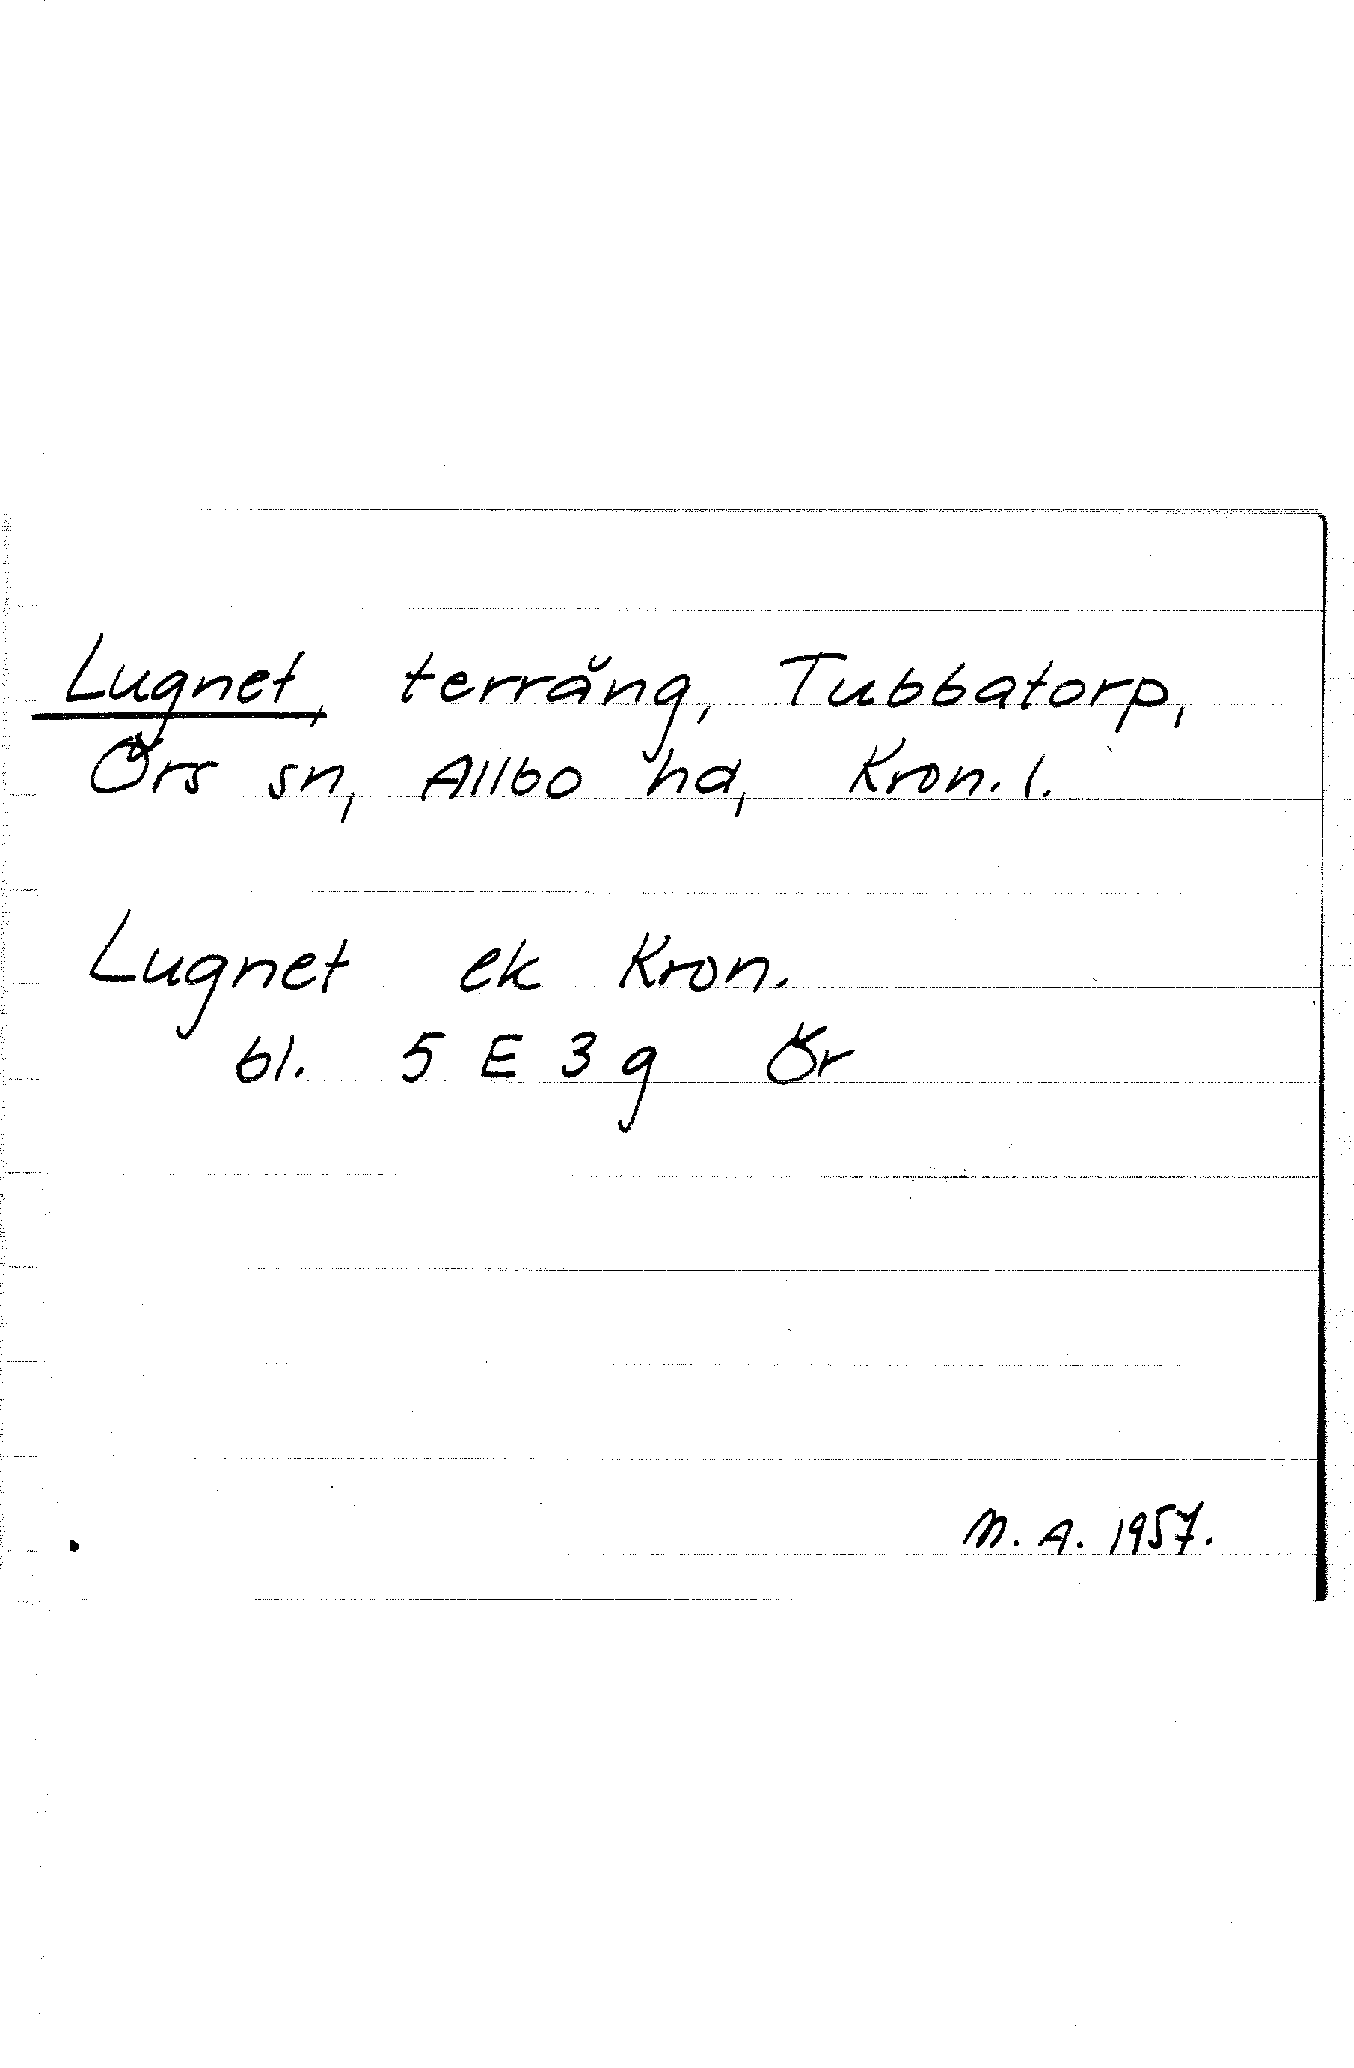 Lugnet, terräng, Tubbatorp,
Örs sn, Allbo hd, Kron. l.
Lugnet ek Kron.
bl. 5 E 3 g Ör
M. A. 1957.